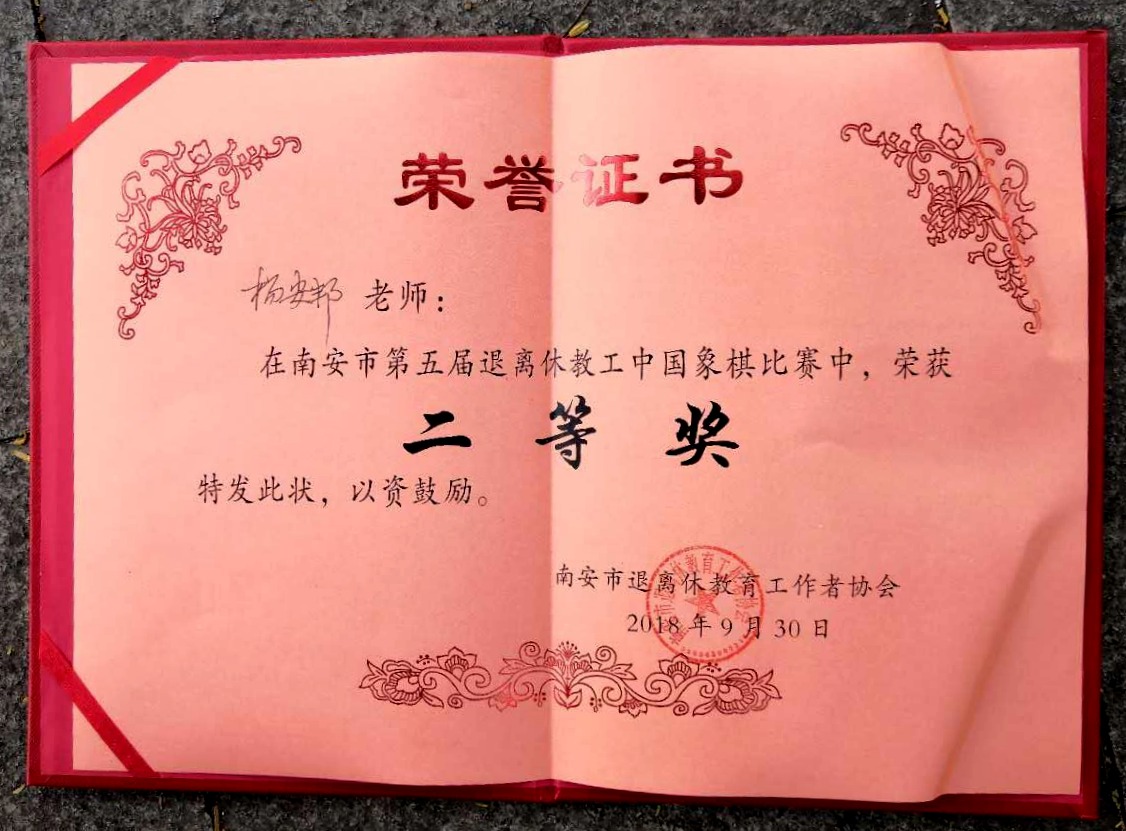 荣誉证书
杨安邦 老师：
在南安市第五届退离休教工中国象棋比赛中，荣获
二等奖
特发此状，以资鼓励。
南安市退离休教育工作者协会
2018年9月30日